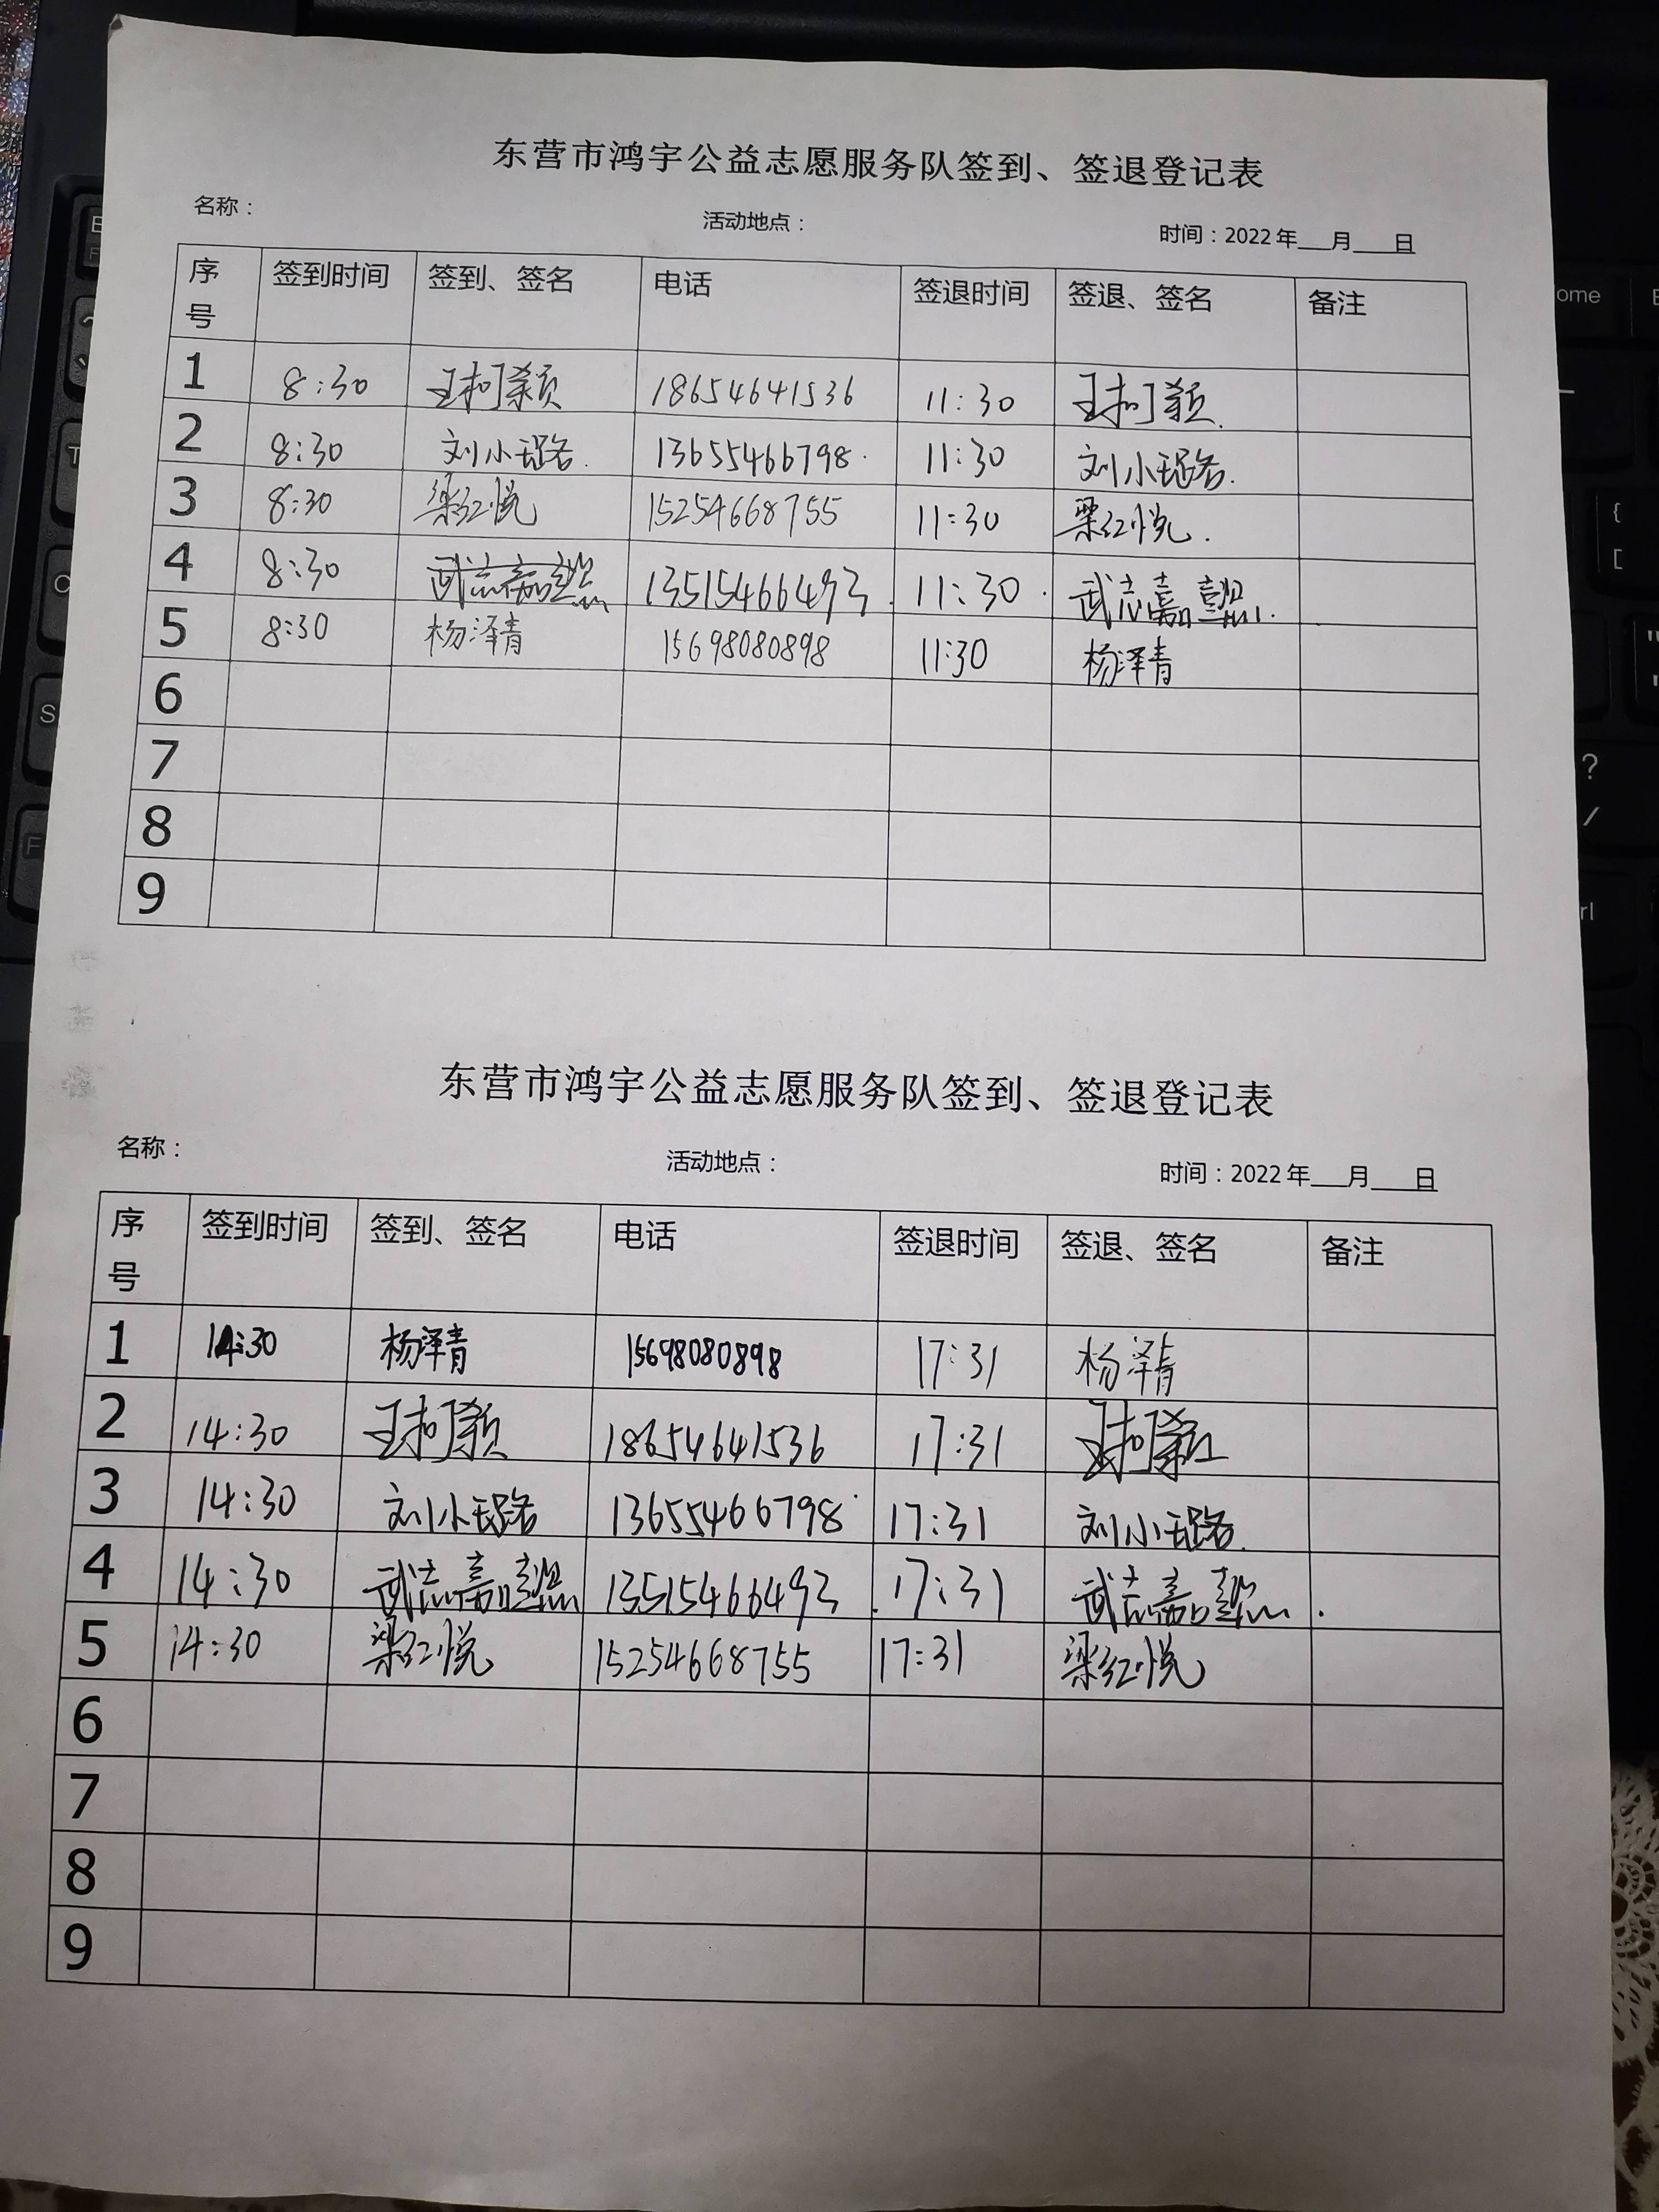 东营市鸿宇公益志愿服务队签到、签退登记表
名称： 活动地点： 时间：2022年___月___日
序号 签到时间 签到、签名 电话 签退时间 签退、签名 备注
1 8:30 王柯颖 18654641536 11:30 王柯颖
2 8:30 刘小璐 13655466798 11:30 刘小璐
3 8:30 梁红悦 15254668755 11:30 梁红悦
4 8:30 武志嘉 13515466493 11:30 武志嘉
5 8:30 杨泽青 15698080898 11:30 杨泽青
6
7
8
9
东营市鸿宇公益志愿服务队签到、签退登记表
名称： 活动地点： 时间：2022年___月___日
序号 签到时间 签到、签名 电话 签退时间 签退、签名 备注
1 14:30 杨泽青 15698080898 17:31 杨泽青
2 14:30 王柯颖 18654641536 17:31 王柯颖
3 14:30 刘小璐 13655466798 17:31 刘小璐
4 14:30 武志嘉 13515466493 17:31 武志嘉
5 14:30 梁红悦 15254668755 17:31 梁红悦
6
7
8
9